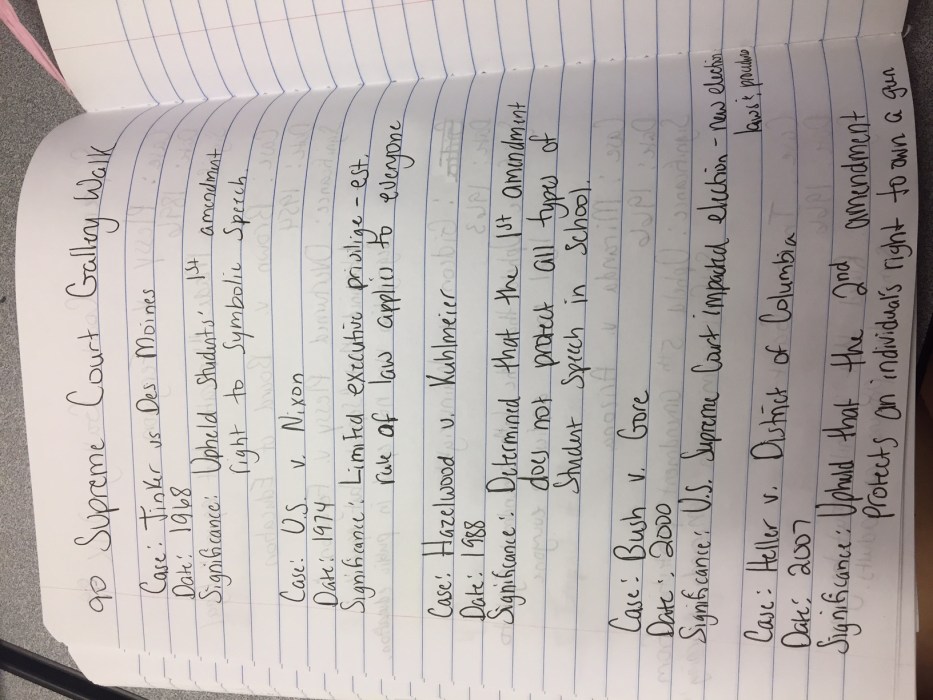 90 Supreme Court Gallery Walk
Case: Tinker vs Des Moines
Date: 1968
Significance: Upheld Students' 1st amendment
right to Symbolic Speech.
Case: U.S. v. Nixon
Date: 1974
Significance: Limited executive privilige - est.
rule of law applies to everyone
Case: Hazelwood v. Kuhlmeier
Date: 1988
Significance: Determined that the 1st amendment
does not protect all types of
Student Speech in School.
Case: Bush v. Gore
Date: 2000
Significance: U.S. Supreme Court impacted election - new election
laws & procedures
Case: Heller v. District of Columbia
Date: 2007
Significance: Upheld that the 2nd amendment
protects an individual's right to own a gun